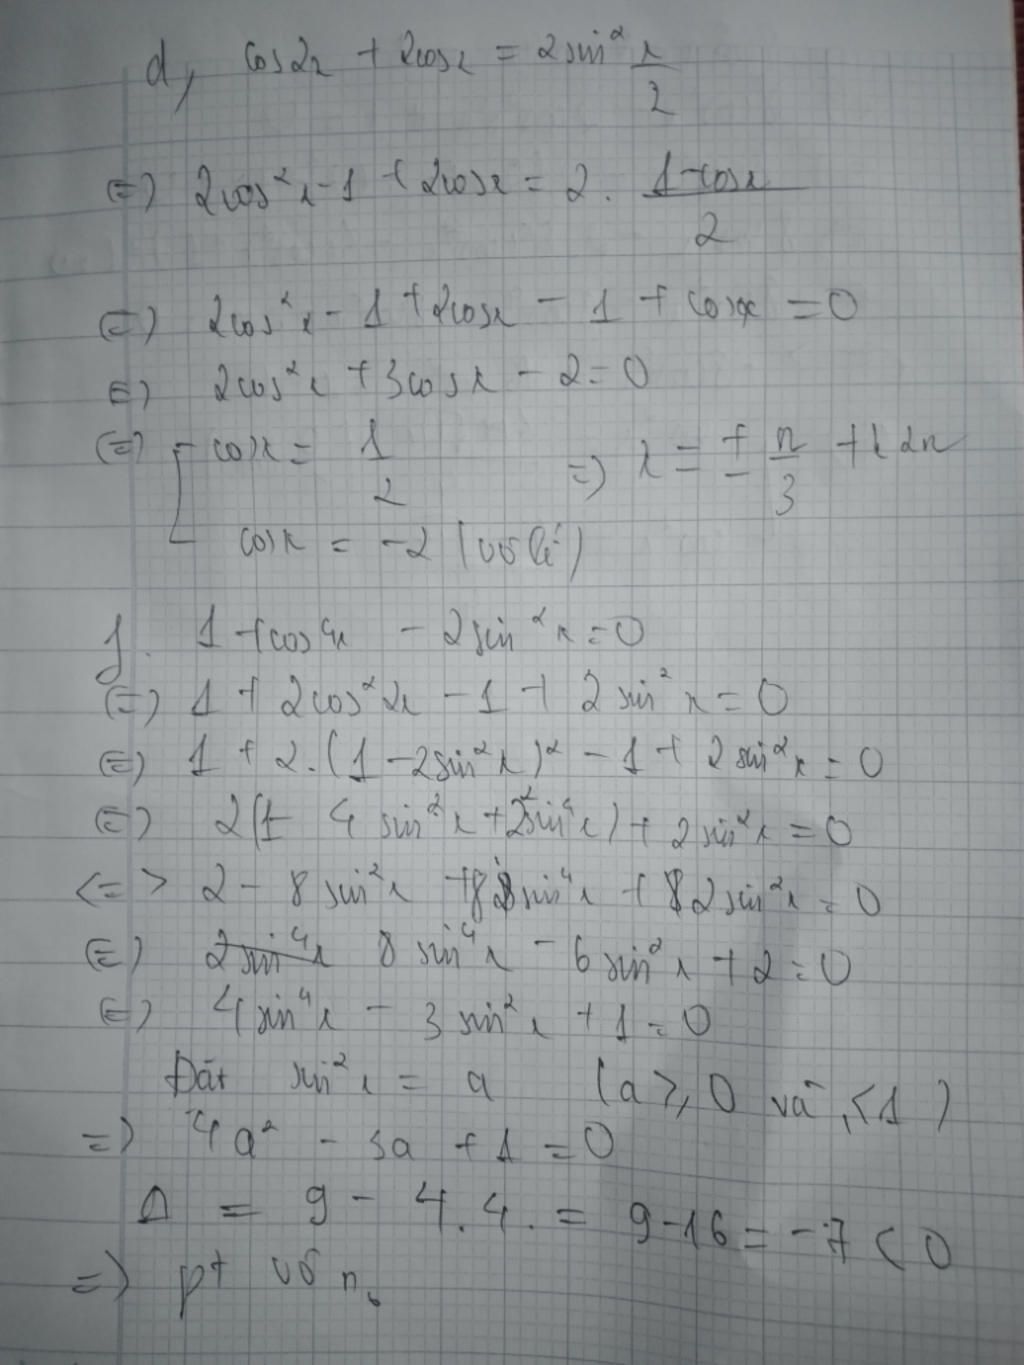 d, cos2x + 2cosx = 2sin² x/2
(=) 2cos²x - 1 + 2cosx = 2 . (1-cosx)/2
(=) 2cos²x - 1 + 2cosx - 1 + cosx = 0
(=) 2cos²x + 3cosx - 2 = 0
(=) [ cosx = 1/2 => x = ± π/3 + k2π
cosx = -2 (vô lí)
f. 1 + cos4x - 2sin²x = 0
(=) 1 + 2cos²2x - 1 + 2sin²x = 0
(=) 1 + 2.(1 - 2sin²x)² - 1 + 2sin²x = 0
(=) 2(1 - 4sin²x + 2²sin⁴x) + 2sin²x = 0
<=> 2 - 8sin²x + 8sin⁴x + 2sin²x = 0
(=) 8sin⁴x - 6sin²x + 2 = 0
(=) 4sin⁴x - 3sin²x + 1 = 0
Đặt sin²x = a (a ≥ 0 và ≤ 1)
=) 4a² - 3a + 1 = 0
Δ = 9 - 4.4. = 9 - 16 = -7 < 0
=) pt vô n